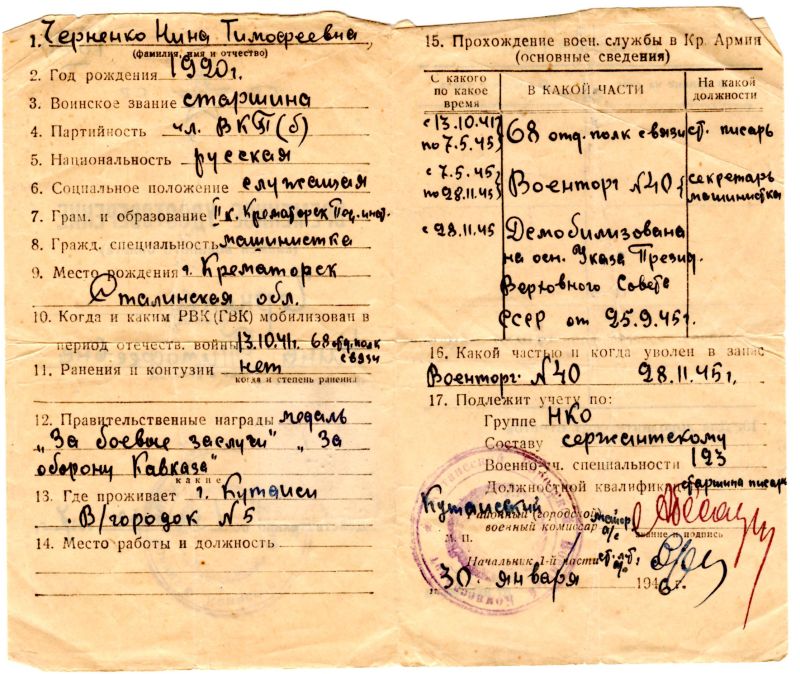 1. Черненко Нина Тимофеевна
(фамилия, имя и отчество)
2. Год рождения 1920 г.
3. Воинское звание старшина
4. Партийность чл. ВКП(б)
5. Национальность русская
6. Социальное положение служащая
7. Грам. и образование II к. Краматорск Пед. инст.
8. Гражд. специальность машинистка
9. Место рождения г. Краматорск
Сталинская обл.
10. Когда и каким РВК (ГВК) мобилизован в
период отечеств. войны 13.10.41г. 68 отд. полк
связи
11. Ранения и контузии нет
когда и степень ранения
12. Правительственные награды медаль
„За боевые заслуги" „За
оборону Кавказа"
какие
13. Где проживает г. Кутаиси
В/городок №5
14. Место работы и должность
15. Прохождение воен. службы в Кр. Армии
(основные сведения)
С какого по какое время
В КАКОЙ ЧАСТИ
На какой должности
с 13.10.41 по 7.5.45 68 отд. полк связи ст. писарь
с 7.5.45 по 28.11.45 Военторг №40 секретарь машинистка
с 28.11.45 Демобилизована
на осн. Указа Презид.
Верховного Совета
СССР от 25.9.45г.
16. Какой частью и когда уволен в запас
Военторг №40 28.11.45г.
17. Подлежит учету по:
Группе НКО
Составу сержантскому
Военно-уч. специальности 123
Должностной квалифик. старшина писарь
Кутаисский
Районный (городской)
военный комиссар майор а/с
звание и подпись
М. П.
Начальник 1-й части ст. л-т. а/с
30 января 1946 г.